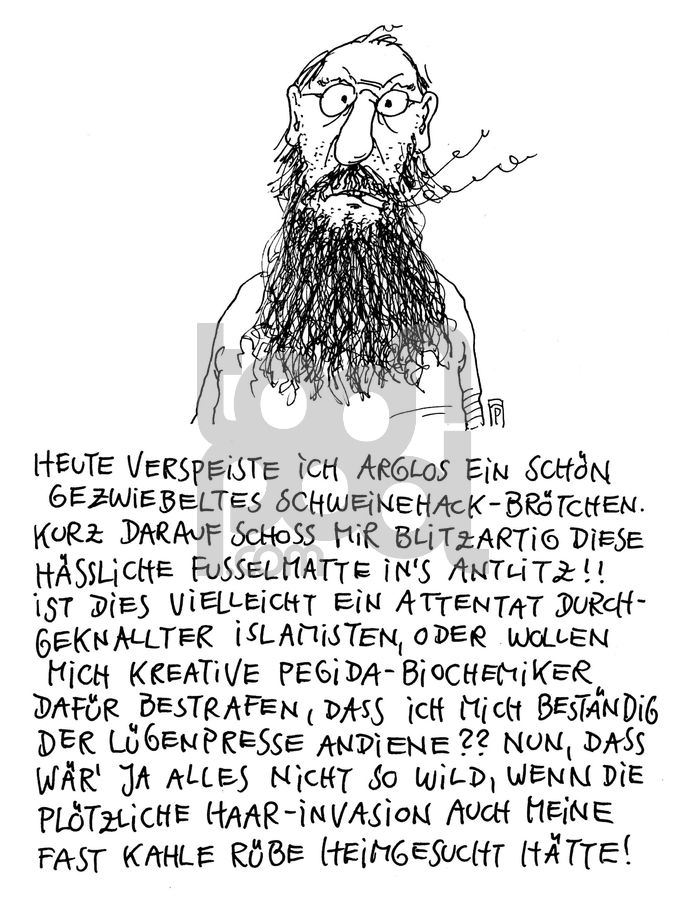 P
toonpool
.com
HEUTE VERSPEISTE iCH ARGLOS EiN SCHÖN
GEZWiEBELTES SCHWEiNEHACK-BRÖTCHEN.
KURZ DARAUF SCHOSS MiR BLiTZARTiG DiESE
HÄSSLiCHE FUSSELMATTE iN'S ANTLiTZ!!
iST DiES ViELLEiCHT EiN ATTENTAT DURCH-
GEKNALLTER iSLAMiSTEN, ODER WOLLEN
MiCH KREATiVE PEGiDA-BiOCHEMiKER
DAFÜR BESTRAFEN, DASS iCH MiCH BESTÄNDiG
DER LÜGENPRESSE ANDiENE?? NUN, DASS
WÄR' JA ALLES NiCHT SO WiLD, WENN DiE
PLÖTZLiCHE HAAR-iNVASiON AUCH MEiNE
FAST KAHLE RÜBE HEiMGESUCHT HÄTTE!